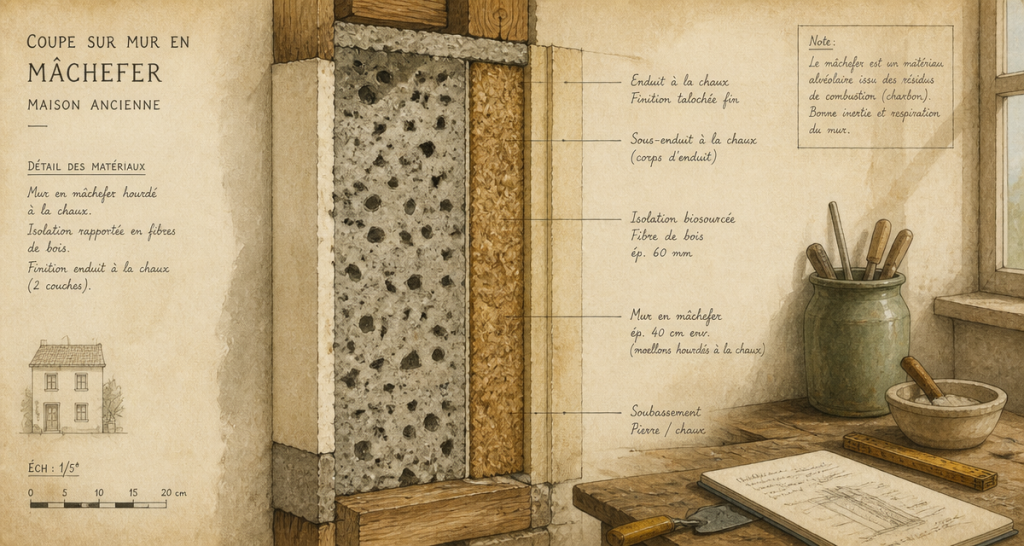 COUPE SUR MUR EN
MÂCHEFER
MAISON ANCIENNE
DÉTAIL DES MATÉRIAUX
Mur en mâchefer hourdé
à la chaux.
Isolation rapportée en fibres
de bois.
Finition enduit à la chaux
(2 couches).
ÉCH : 1/5ᵉ
0 5 10 15 20 cm
Enduit à la chaux
Finition talochée fin
Sous-enduit à la chaux
(corps d'enduit)
Isolation biosourcée
Fibre de bois
ép. 60 mm
Mur en mâchefer
ép. 40 cm env.
(moellons hourdés à la chaux)
Soubassement
Pierre / chaux
Note :
Le mâchefer est un matériau
alvéolaire issu des résidus
de combustion (charbon).
Bonne inertie et respiration
du mur.